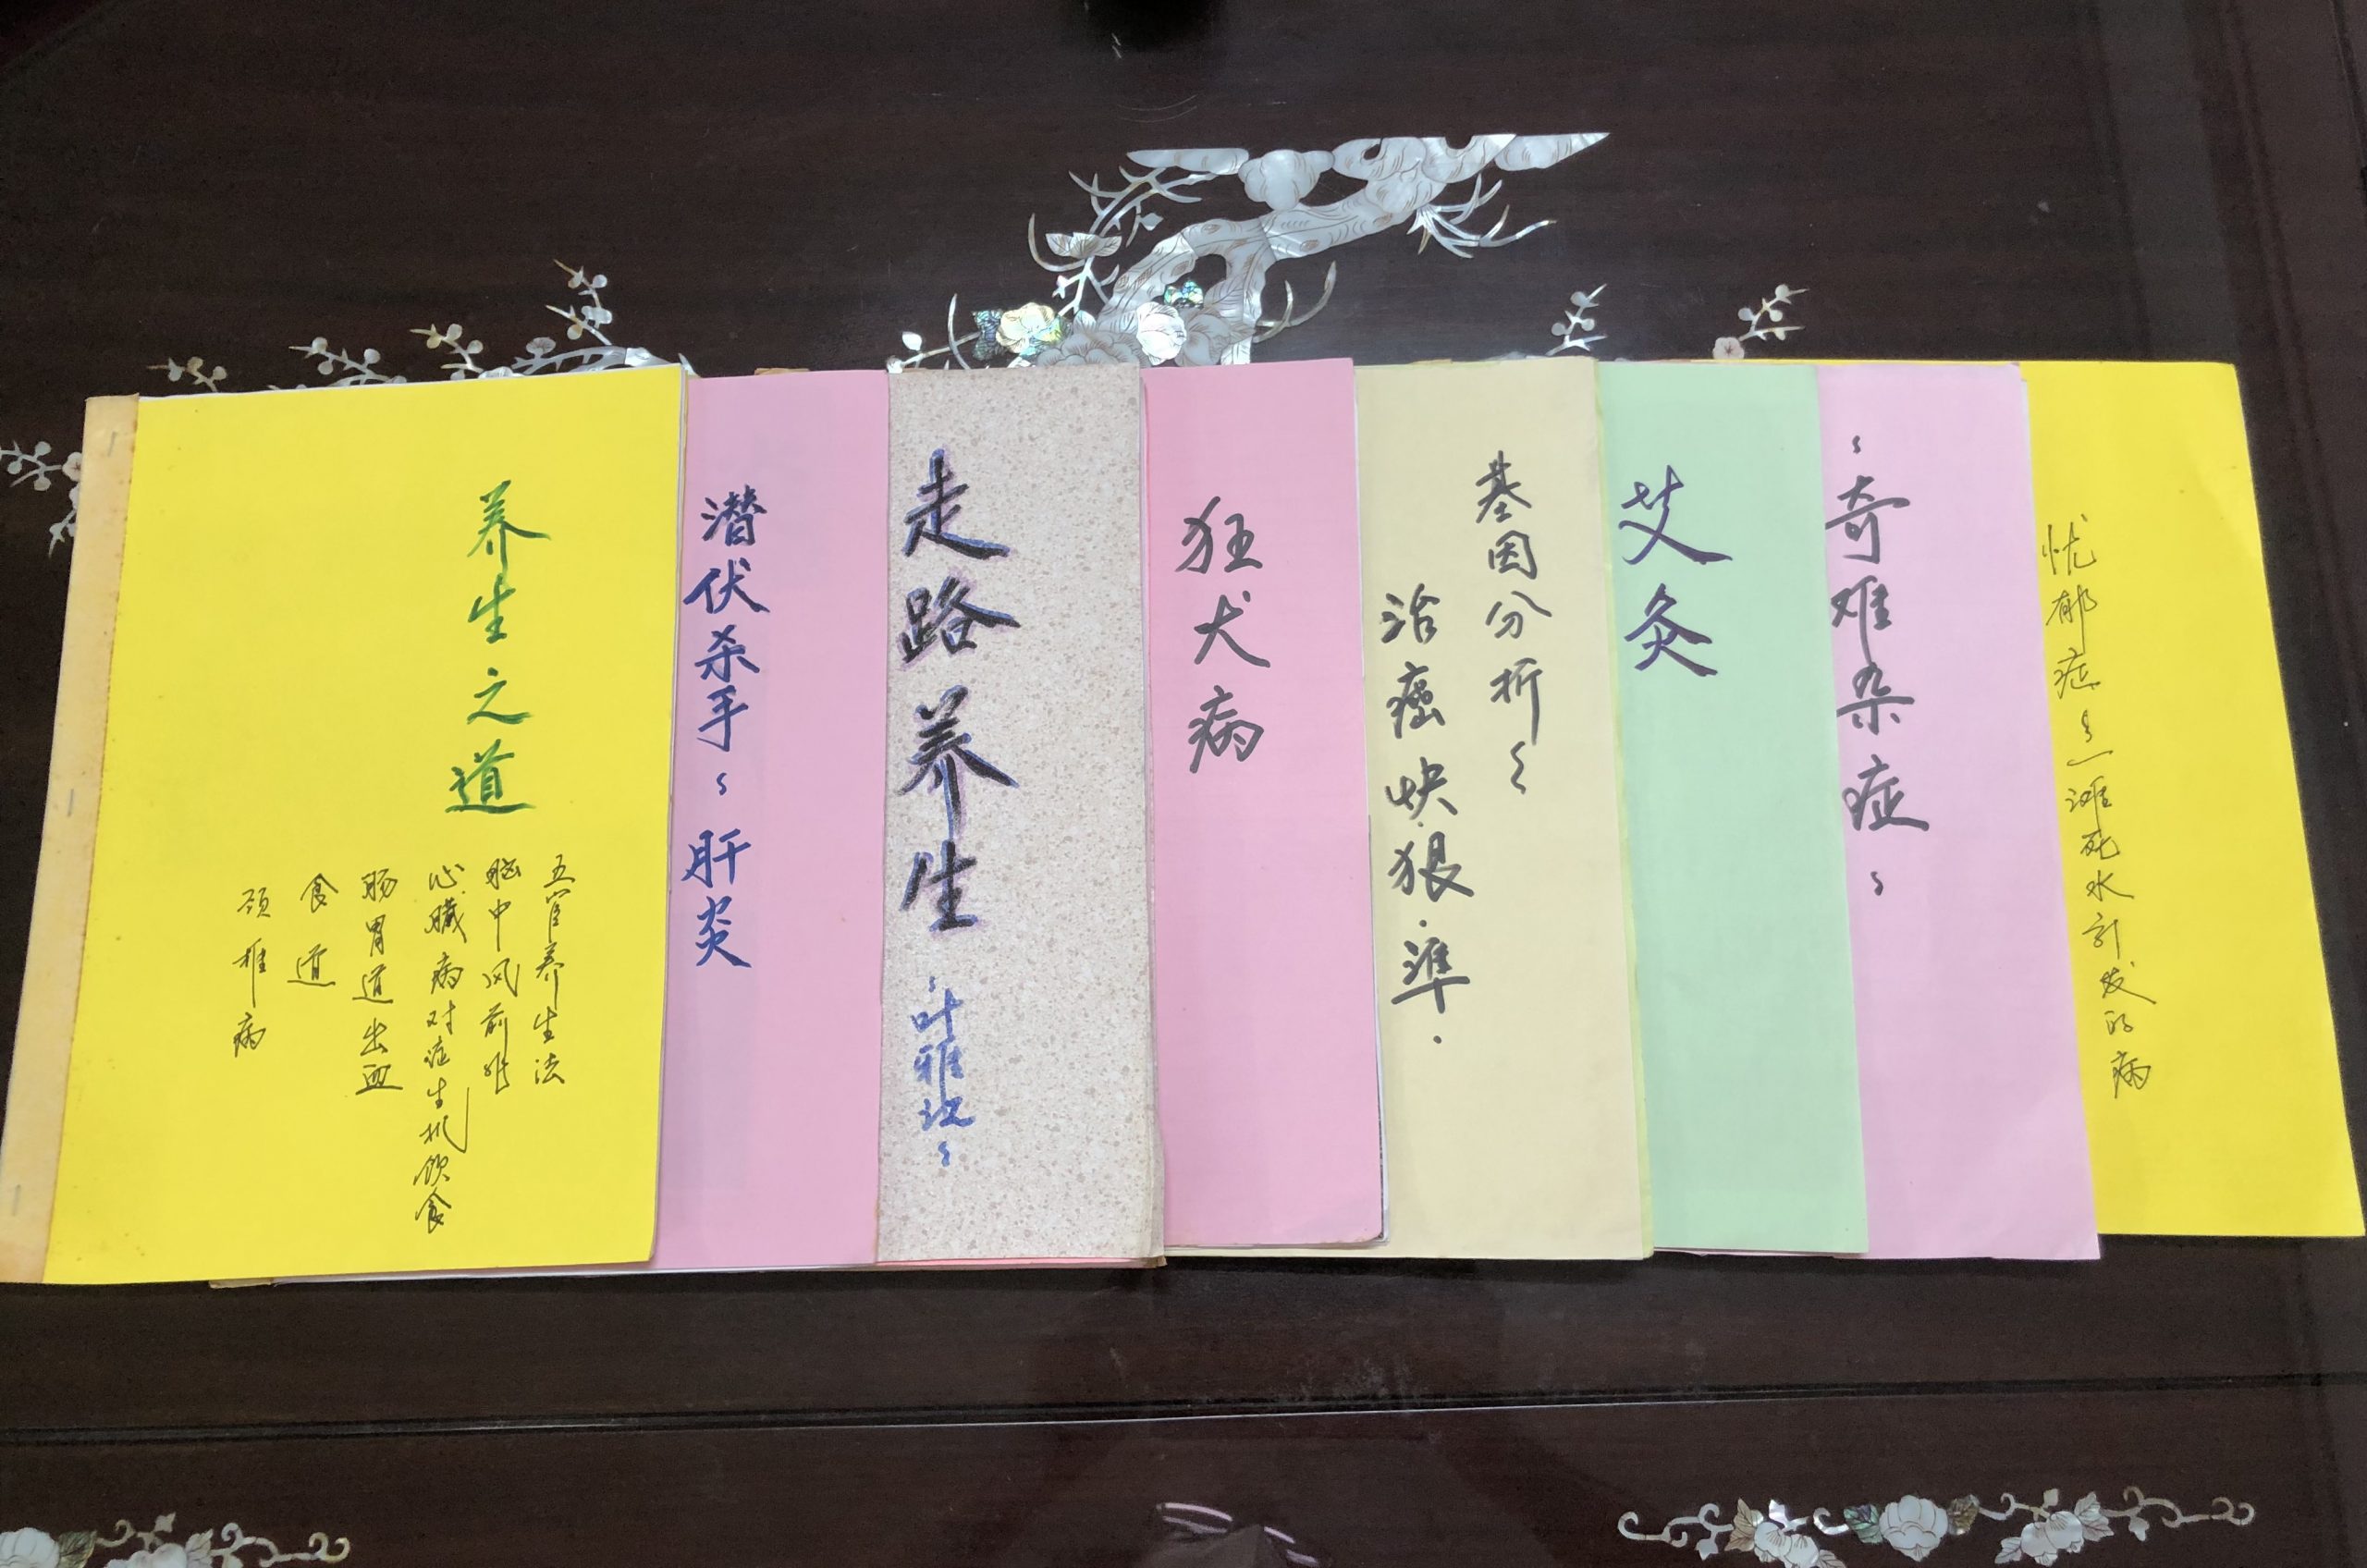 养生之道
五官养生法
脑中风前兆
心臟病对症生机饮食
肠胃道出血
食道
颈椎病
潜伏杀手~肝炎
走路养生
~叶雅~
狂犬病
基因分析~
治癌快.狠.準.
艾灸
~奇难杂症~
忧郁症~一滩死水引发的病